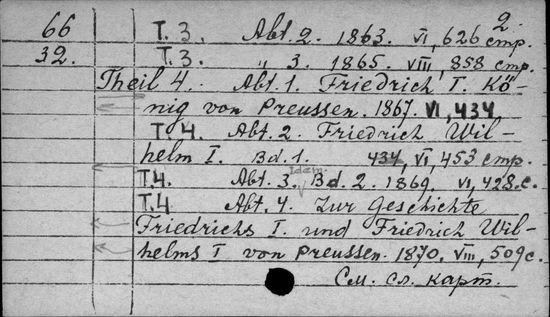 2.
66 T. 3. Abt. 2. 1863. VI, 626 стр.
32. T. 3. „ 3. 1865. VIII, 858 стр.
Theil 4. Abt. 1. Friedrich I. Kö-
nig von Preussen. 1867. VI, 434
T. 4. Abt. 2. Friedrich Wil-
helm I. Bd. 1. 434, VI, 453 стр.
Idem.
T.4. Abt. 3. Bd. 2. 1869. VI, 428 с.
T.4 Abt. 4. Zur Geschichte
Friedrichs I. und Friedrich Wil-
helms I von Preussen. 1870. VIII, 509 с.
См. сл. карт.